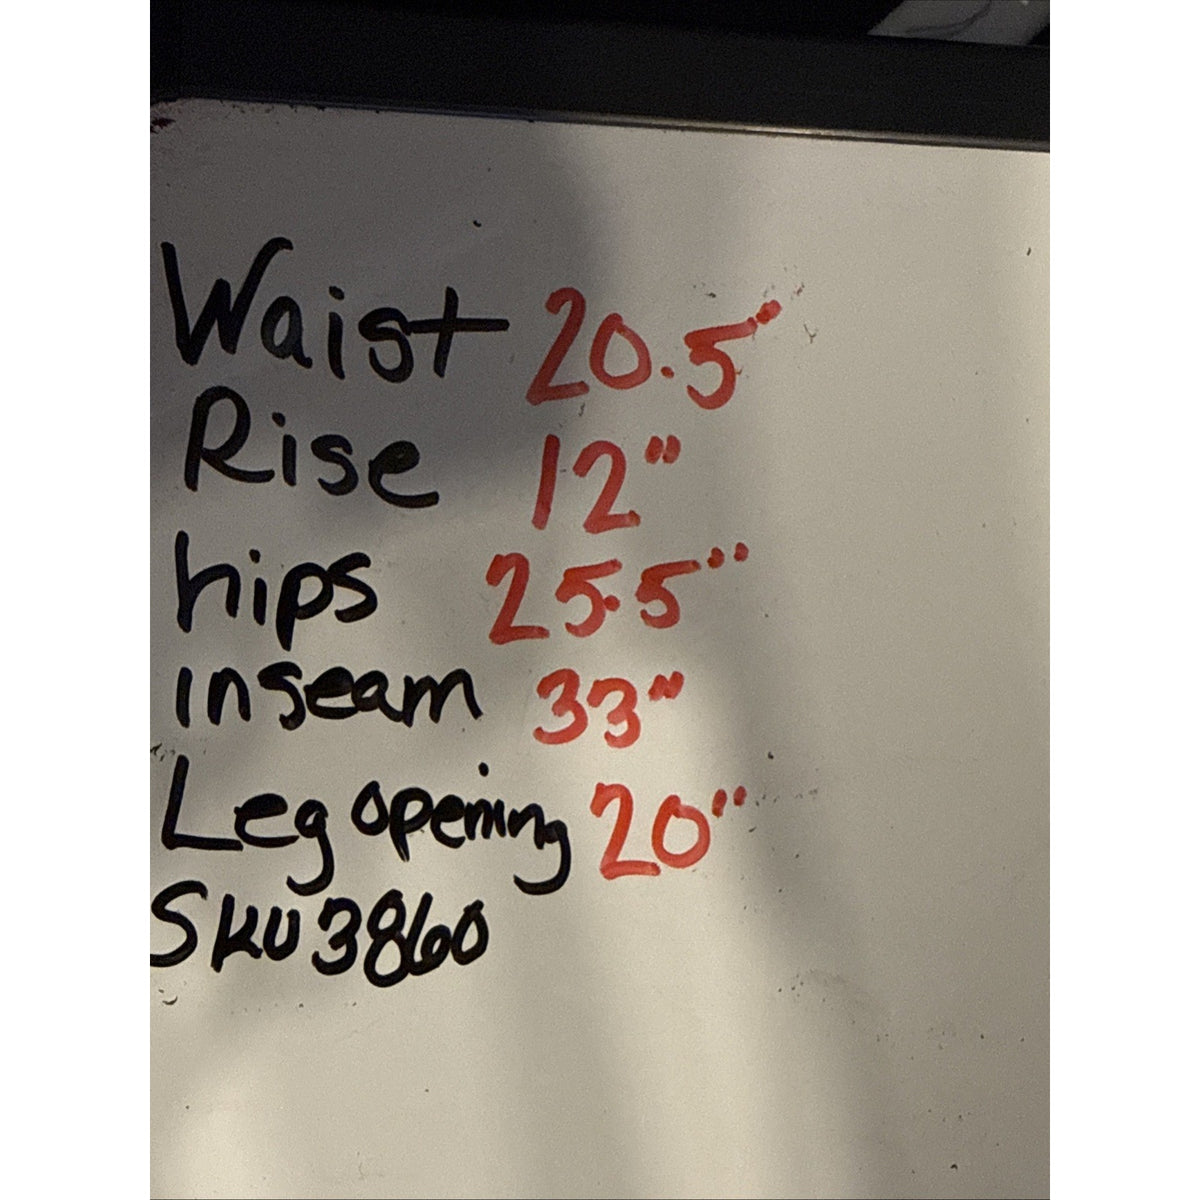 Waist 20.5"
Rise 12"
hips 25.5"
inseam 33"
Leg opening 20"
SKU 3860